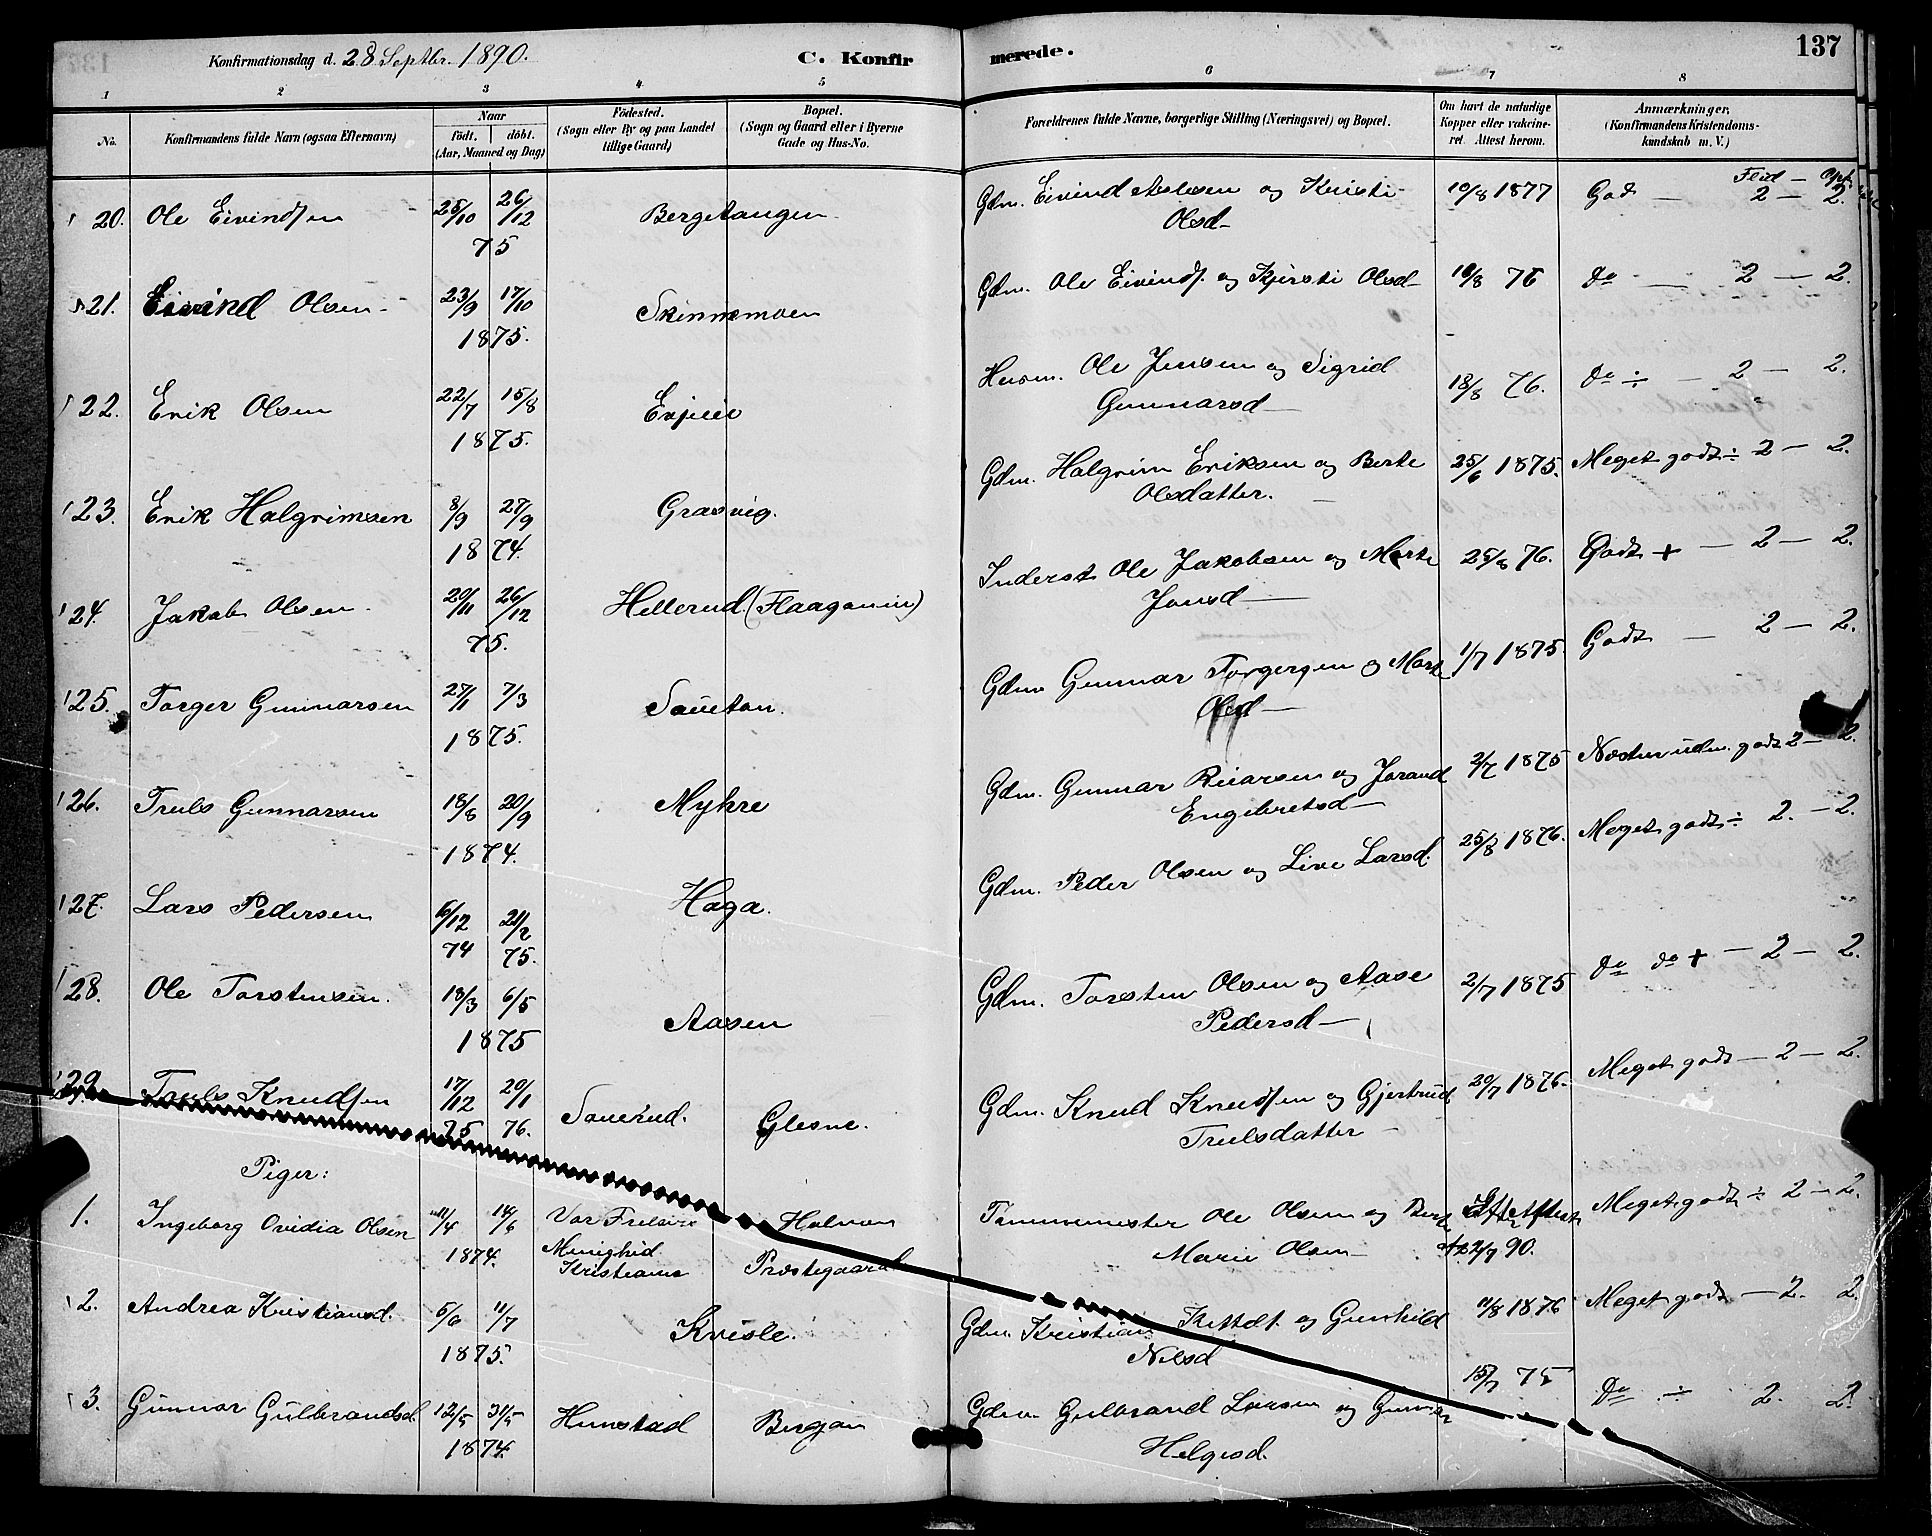 Konfirmationsdag d. 28 Septbr. 1890.
C. Konfir
merede.
137
1 2 3 4 5 6 7 8
No.
Konfirmandens fulde Navn (ogsaa Efternavn)
Naar
födt. döbt.
(Aar, Maaned og Dag)
Födested.
(Sogn eller By og paa Landet
tillige Gaard)
Bopæl.
(Sogn og Gaard eller i Byerne
Gade og Hus-No.
Forældrenes fulde Navne, borgerlige Stilling (Næringsvei) og Bopæl.
Om havt de naturlige
Kopper eller vakcine-
ret. Attest herom.
Anmærkninger,
(Konfirmandens Kristendoms-
kundskab m. V.)
Flid — Opf.
20. Ole Eivindsen 25/10 26/12 Bergetangen Gdm. Eivind Aslesen og Kristi 10/8 1877 Godt — 2 — 2.
75 Olsd
21. Eivind Olsen 23/9 17/10 Skinnemoen Gdm. Ole Eivinds. og Kjersti Olsd 10/8 76 do — 2 — 2.
1875.
22. Erik Olsen 22/7 15/8 Husm. Ole Jensen og Sigrid 18/8 76. do ÷ — 2 — 2.
1875. Gunnarsd
23. Erik Halgrimsen 8/9 27/9 Grasvig. Gdm. Halgrim Eriksen og Berte 25/6 1875. Meget godt ÷ 2 — 2.
1874. Olsdatter.
24. Jakob Olsen 20/11 26/12 Hellerud Inderst Ole Jakobsen og Marte 25/8 76. Godt + — 2 — 2.
75. Jonsd
25. Torger Gunnarsen 27/1 7/3 Gdm. Gunnar Torgersen og Marte 1/7 1875. Godt — 2 — 2.
1875. Olsd
26. Truls Gunnarsen 18/8 20/9 Myhre Gdm. Gunnar og Jorand 2/7 1875 Næsten udm. godt 2 — 2.
1874. Engebretsd
27. Lars Pedersen 6/12 21/2 Haga. Gdm. Peder Olsen og Live Larsd. 25/8 1876. Meget godt ÷ 2. — 2.
74 75.
28. Ole Torstensen. 18/3 6/5 Aasen Gdm. Torsten Olsen og Aase 2/7 1875 do do + — 2 — 2.
1875 Pedersd
29. Truls Knudsen 17/12 20/1 Glesne. Gdm. Knud Knudsen og Gjertrud 20/7 1876. Meget godt — 2 — 2.
75 76. Trulsdatter
Piger:
1. Ingeborg Ovidia Olsen 11/4 14/6 Vor Frelsers Tømmermester Ole Olsen og Berte Meget godt ÷ 2 — 2.
1874. Menighed Præstegaard Marie Olsen 22/7 90.
Kristiania
2. Andrea Kristiansd. 5/6 11/7 Kvisle. Gdm. Kristian og Gunhild 1876 Meget godt — 2. 2.
1875. Nilsd
3. Gunnor Gulbrandsd. 12/5 31/5 Gdm. Gulbrand Larsen og 15/7 75 Do ÷ 2. 2.
1874. Helgesd.